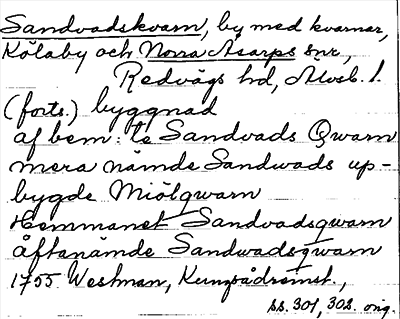 Sandvadskvarn, by med kvarnar,
Kölaby och Norra Åsarps snr,
Redvägs hd, Älvsb. l.
(forts.) byggnad
af bem: te Sandvads Qwarn
mera nämde Sandwads up-
bygde Miölqwarn
Hemmanet Sandvadsqwarn
åftanämde Sandwadsqwarn
1755 Westman, Kungsådreinst.,
ss. 301, 302. orig.